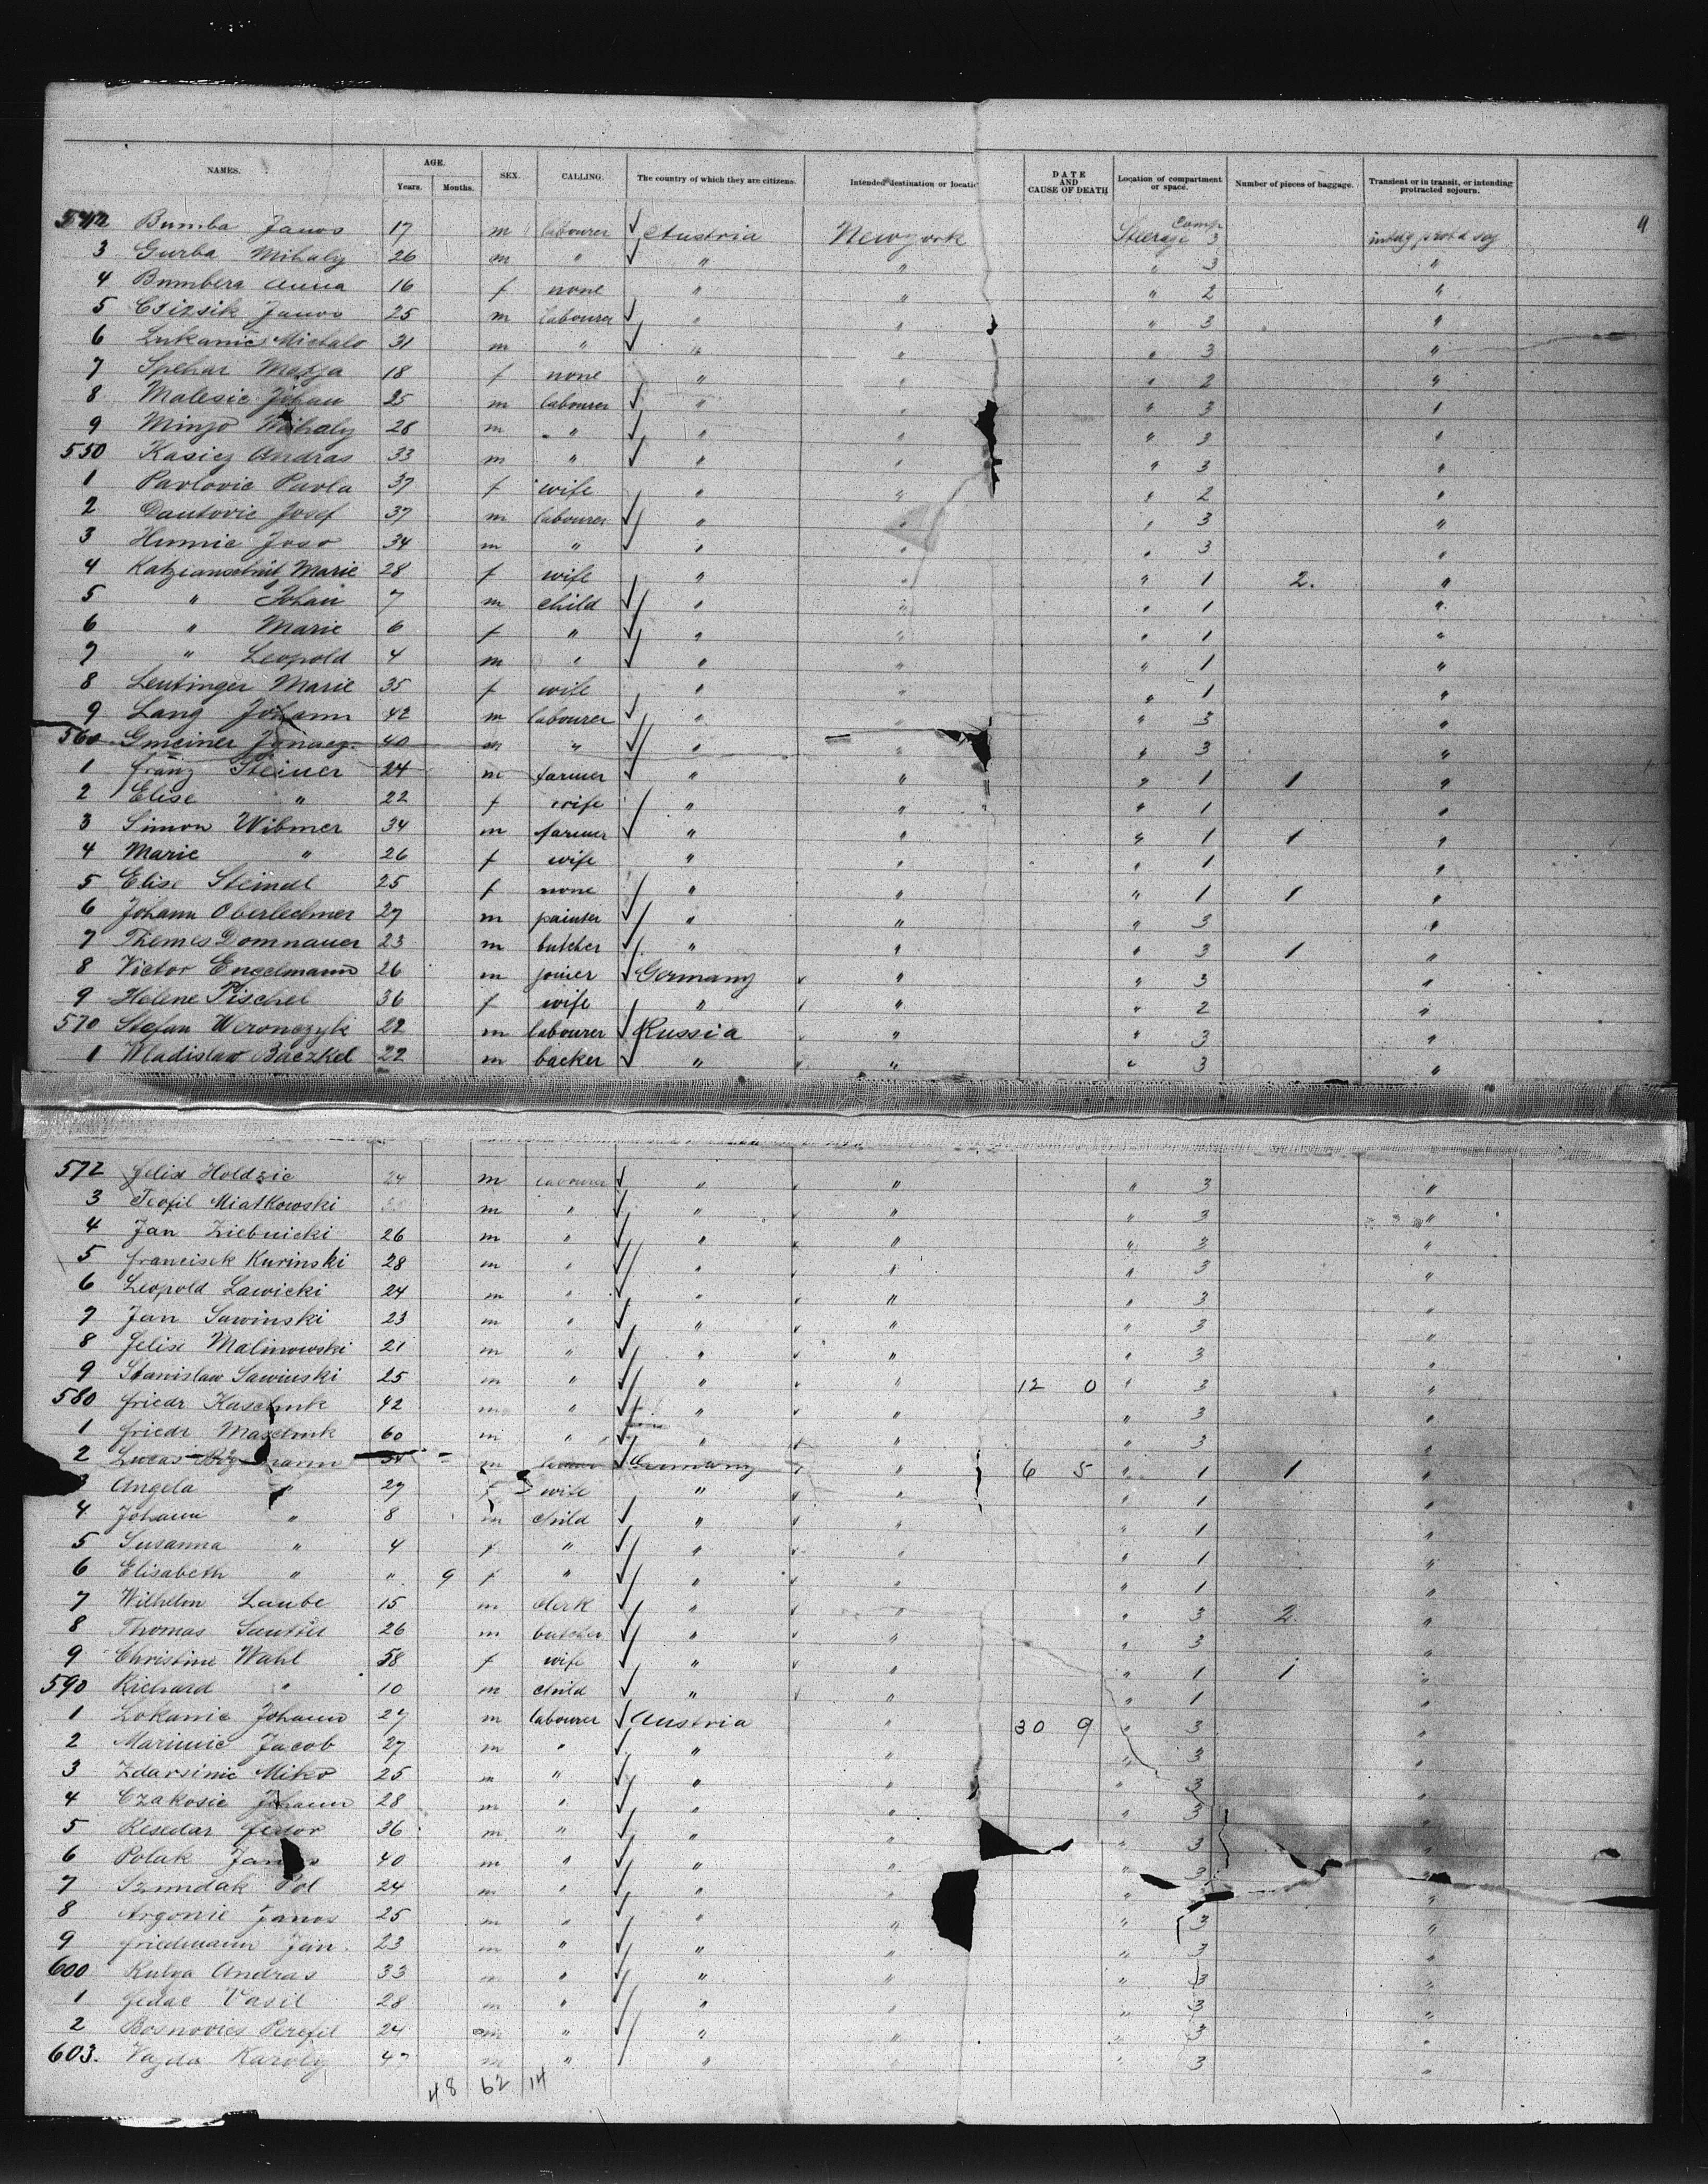 NAMES. AGE. Years. Months. SEX. CALLING. The country of which they are citizens. Intended destination or locatio DATE AND CAUSE OF DEATH Location of compartment or space. Number of pieces of baggage. Transient or in transit, or intending protracted sojourn.
542 Bumba Janos 17 m labourer Austria Newyork Steerage Comp 3 11
3 Gurba Mihaly 26 m " " " " 3 "
4 Bumbera Anna 16 f none " " " 2 "
5 Csizsik Janos 25 m labourer " " " 3 "
6 Lukanics Michalo 31 m " " " " 3 "
7 Spehar Marja 18 f none " " " 2 "
8 Malesic Johan 25 m labourer " " " 3 "
9 Minjo Mihaly 28 m " " " " 3 "
550 Kasicz Andras 33 m " " " " 3 "
1 Pavlovic Pavla 37 f wife " " " 2 "
2 Dautovic Josef 37 m labourer " " " 3 "
3 Humic Joso 34 m " " " " 3 "
4 Marie 28 f wife " " " 1 2. "
5 " Johan 7 m child " " " 1 "
6 " Marie 6 f " " " " 1 "
7 " Leopold 4 m " " " " 1 "
8 Leutinger Marie 35 f wife " " " 1 "
9 Lang Johann 42 m labourer " " " 3 "
560 Gmeiner Ignacz. 40 m " " " 3 "
1 Franz Steiner 24 m farmer " " " 1 1 "
2 Elise " 22 f wife " " " 1 "
3 Simon Wibmer 34 m farmer " " " 1 1 "
4 Marie " 26 f wife " " " 1 "
5 Elise Steindl 25 f none " " " 1 1 "
6 Johann Oberlechner 27 m painter " " " 3 "
7 Themes Domnauer 23 m butcher " " " 3 1 "
8 Victor Engelmann 26 m joiner Germany " " 3 "
9 Helene Pischel 36 f wife " " " 2 "
570 Stefan Weronczyk 22 m labourer Russia " " 3 "
1 Wladislav Baczkel 22 m backer " " " 3 "
572 Felix Holdzic 24 m labourer " " " 3 "
3 Teofil Miatkowski m " " " " 3 "
4 Jan Ziebnicki 26 m " " " " 3 "
5 Francisek Kurinski 28 m " " " " 3 "
6 Leopold Lawicki 24 m " " " " 3 "
7 Jan Sawinski 23 m " " " " 3 "
8 Felix Malinowski 21 m " " " " 3 "
9 Stanislaw Sawinski 25 m " " " 12 0 " 3 "
580 Friedr Kaschuk 42 m " " " " 3 "
1 Friedr Maschuk 60 m " " " " 3 "
2 Lucas m Germany " 6 5 " 1 1 "
3 Angela " 27 f wife " " " 1 "
4 Johann " 8 m child " " " 1 "
5 Susanna " 4 f " " " " 1 "
6 Elisabeth " " 9 f " " " " 1 "
7 Wilhelm Laube 15 m clerk " " " 3 2. "
8 Thomas 26 m butcher " " " 3 "
9 Christine Wahl 58 f wife " " " 1 1 "
590 Richard " 10 m child " " " 1 "
1 Lokanic Johann 27 m labourer Austria " 30 9 " 3 "
2 Marinic Jacob 27 m " " " " 3 "
3 Zdarsinic Miko 25 m " " " " 3 "
4 Czakosic Johann 28 m " " " " 3 "
5 Resedar Fedor 36 m " " " " 3 "
6 Polak Janos 40 m " " " " 3 "
7 Szundak Pol 24 m " " " " 3 "
8 Argonic Janos 25 m " " " " 3 "
9 Friedmann Jan. 23 m " " " " 3 "
600 Andras 33 m " " " " 3 "
1 Fedac Vasil 28 m " " " " 3 "
2 Bosnovics Perefil 24 m " " " " 3 "
603. Vajda Karoly 47 m " " " 3 "
48 62 14